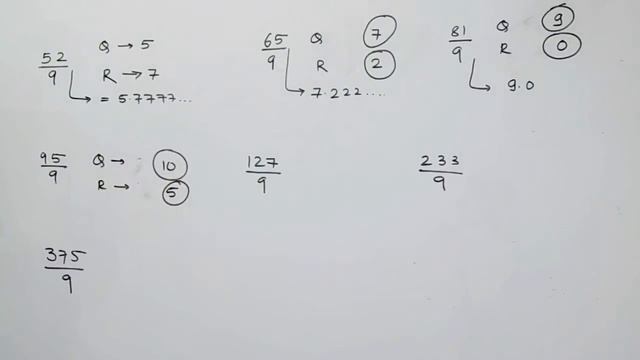 52/9 Q → 5
R → 7
= 5.7777...
65/9 Q 7
R 2
7.222....
81/9 Q 9
R 0
9.0
95/9 Q → 10
R → 5
127/9
233/9
375/9